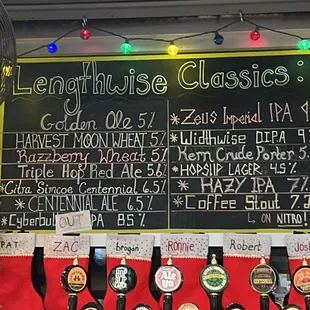 Lengthwise Classics:
Golden Ale 5%
HARVEST MOON WHEAT 5%
Razzberry Wheat 5%
Triple Hop Red Ale 5.6%
*Citra Simcoe Centennial 6.5%
*CENTENNIAL ALE 6.5%
*Cyberbu OUT IPA 8.5%
*Zeus Imperial IPA 9
*Widthwise DIPA 9
Kern Crude Porter 5.
*HOPSUP LAGER 4.5%
*HAZY IPA 7%
*Coffee Stout 7.3
ON NITRO!
PAT
ZAC
brogan
Ronnie
Robert
Josh